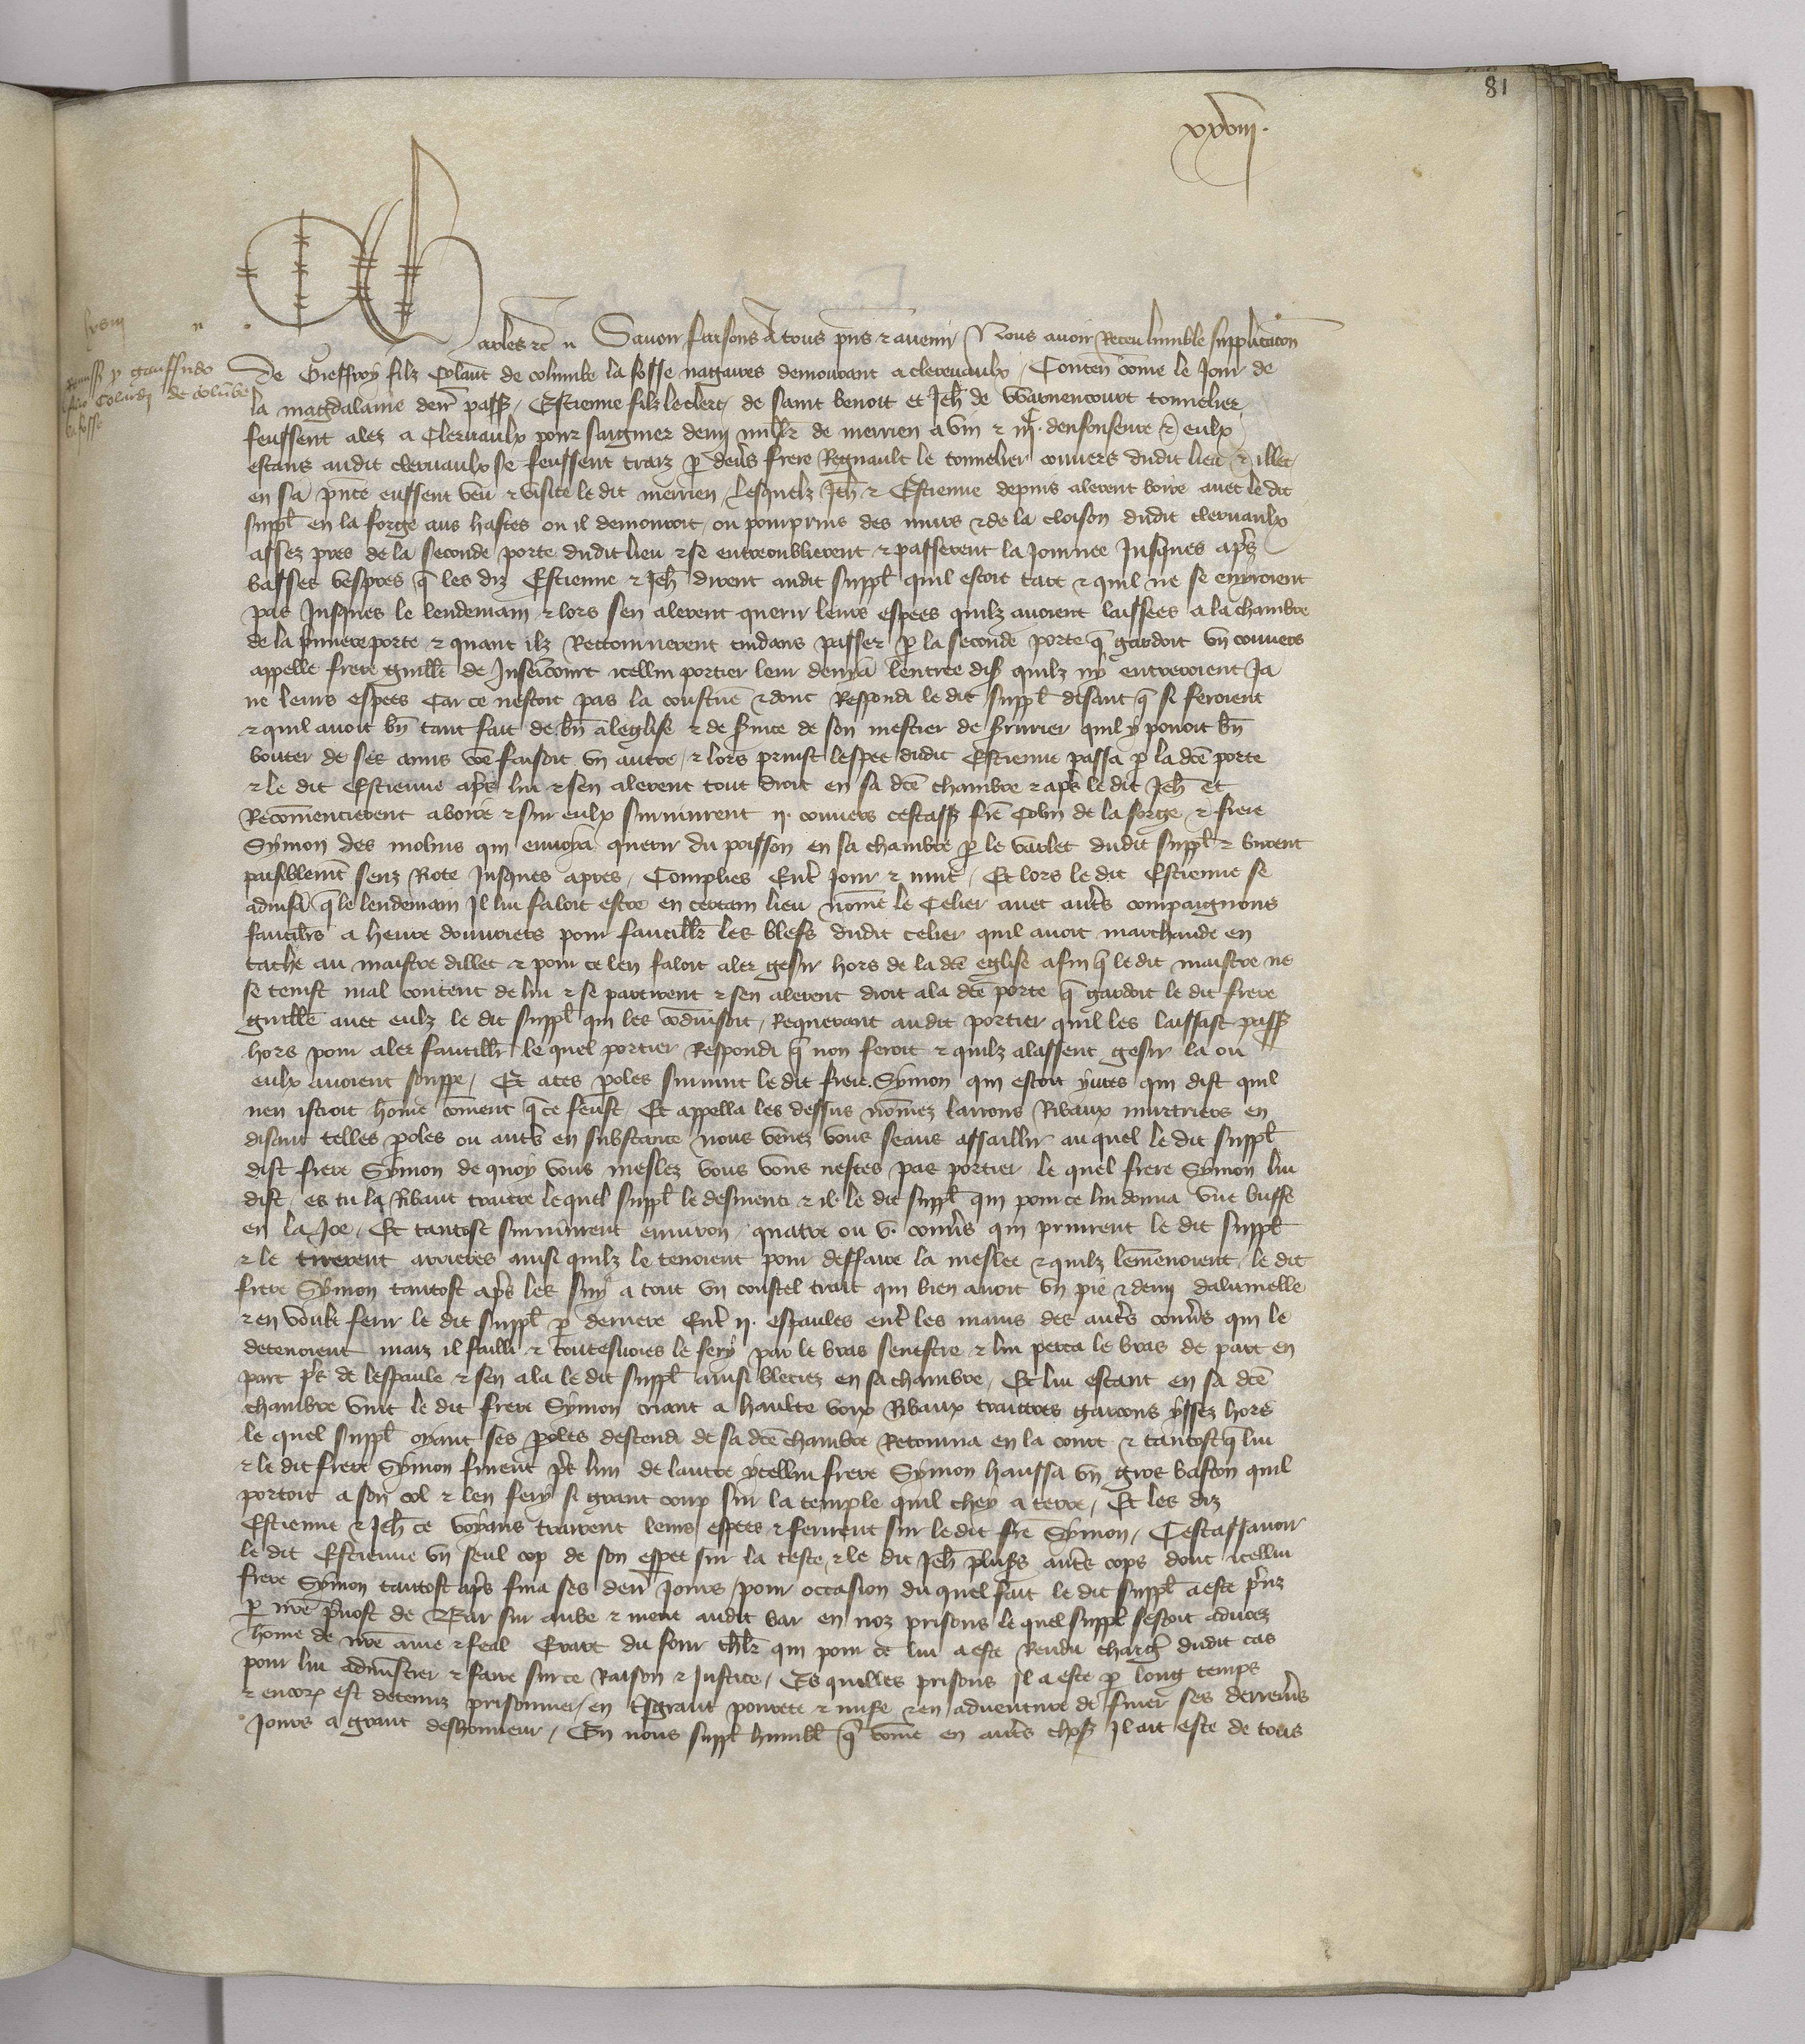 81
xxviii.
Charles etc. Savoir faisons A tous pns & avenir / Nous avoir Receu lumble supplicacon
De Gieffroy filz Colant de columbe la fosse nagaires demourant a clerevaulx / Conten come le Jour de
la magdalaine derr passe / Estienne filz leclerc / de saint benoit et Jeh de Warnencourt tonnelier
feussent alez a Clervaulx pour saigner demi mill de merrien a vin & iiic. denfonseure & eulx
estans audit clervaulx se feussent traiz p devs frere Regnault le tonnelier convers dudit lieu & illec
en sa pnce eussent veu & visite le dit merrien / Lesquelz Jeh & Estienne depuis alerent boire avec le dit
suppl en la forge aus hastes ou il demouroit / ou pourprins des murs & de la cloison dudit clervaulx
assez pres de la seconde porte dudit lieu & se entroublierent & passerent la Journee Jusques aps
basses vespres q les diz Estienne & Jeh dirent audit suppl quil estoit tart & quil ne se en yroient
pas Jusques le lendemain & lors sen alerent querir leurs espees quilz avoient laissees a la chambre
de la pmiere porte & quant ilz Rettournerent cuidans passer p la seconde porte q gardoit un convers
appelle frere guille de Inseicourt icellui portier leur denya lentree dis quilz ny entreroient Ja
ne leurs espees Car ce nestoit pas la coustue & donc Respondi le dit suppl disant q si feroient
& quil avoit bn tant fait de bn a leglise & de svice de son mestier de srurier quil y povoit bn
bouter de ses amis coe faisoit un autre / & lors prinst lespee dudit Estienne passa p la dce porte
& le dit Estienne aps lui & sen alerent tout droit en sa dce chambre & aps le dit Jeh Et
Recomencierent a boire & sur eulx survinrent ii. convers cestass fre Colin de la forge & frere
Symon des molins qui envoya querir du poisson en sa chambre p le varlet dudit suppl & burent
paisiblemt senz Rote Jusques apres / Complies Entr Jour & nuit / Et lors le dit Estienne se
advisa q le lendemain Il lui faloit estre en certain lieu nome le Celier avec autrs compaignons
faucills a heure douvriers pour faucillr les blefs dudit celier quil avoit marchande en
tache au maistre dillec & pour ce len faloit aler gesir hors de la dce eglise afin q le dit maistre ne
se tenist mal content de lui & se partirent & sen alerent droit a la dce porte q gardoit le dit frere
guille avec eulx le dit suppl qui les coduisoit / Requerant audit portier quil les laissast pass
hors pour aler faucillr le quel portier Respondi q non feroit & quilz alassent gesir la ou
eulx avoient souppe / Et a ces poles survint le dit frere Symon qui estoit yvres qui dist quil
nen istroit home coment q ce feust / Et appella les dessus nomez larrons Ribaux murtriers en
disant telles poles ou auts en substance nous venez vous seans assaillir au quel le dit suppl
dist frere Symon de quoy vous meslez vous vous nestes pas portier le quel frere Symon lui
dist / es tu la Ribaut traitre lequel suppl le desmenti & il le dit suppl qui pour ce lui donna une buffe
en la Joe / Et tantost survinrent environ / quatre ou v. convrs qui prinrent le dit suppl
& le tirerent arrieres ainsi quilz le tenoient pour deffaire la meslee & quilz lemenoient / le dit
frere Symon tantost aps les suy a tout un coustel trait qui bien avoit un pie & demi dalumelle
& en voult ferir le dit suppl p derriere Entr ii. espaules entr les mains des autrs convrs qui le
detenoient maiz il failli & toutesvoies le fery par le bras senestre & lui perca le bras de part en
part ps de lespaule & sen ala le dit suppl ainsi bleciez en sa chambre / Et lui estant en sa dce
chambre vint le dit frere Symon criant a haulte voix Ribaux traittres garcons yssez hors
le quel suppl oyant ses poles descendi de sa dce chambre Retourna en la court & tantost q lui
& le dit frere Symon furent ps lun de lautre ycellui frere Symon haussa un gros baston quil
portoit a son col & len fery si grant coup sur la temple quil chey a terre / Et les diz
Estienne & Jeh ce voyans trairent leurs espees & ferirent sur le dit fre Symon / Cestassavoir
le dit Estienne un seul cop de son espee sur la teste & le dit Jeh plusrs auts cops dont icellui
frere Symon tantost aps fina ses derr Jours / pour occasion du quel fait le dit suppl a este prinz
p nre pvost de Bar sur aube & mene audit bar en noz prisons le quel suppl sestoit advoez
home de nre ame & feal Erart du four chlr qui pour ce lui a este Rendu charge dudit cas
pour lui administrer & faire sur ce Raison & Justice / Es quelles prisons Il a este p long temps
& encor est detenuz prisonnier / en tsgrant povrete & mise & en adventure de finer ses derreirs
Jours a grant deshonneur / En nous suppl humbl q come en autrs choses Il ait este de tous